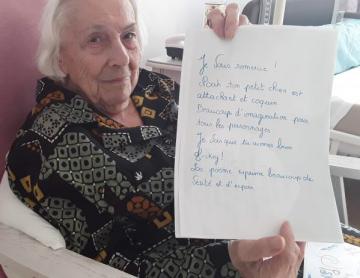 Je vous remercie !
Noah ton petit chien est
attachant et coquin
Beaucoup d'imagination pour
tous les personnages
Je sais que tu aimes bien
Le poème exprime beaucoup de
et d'espoir